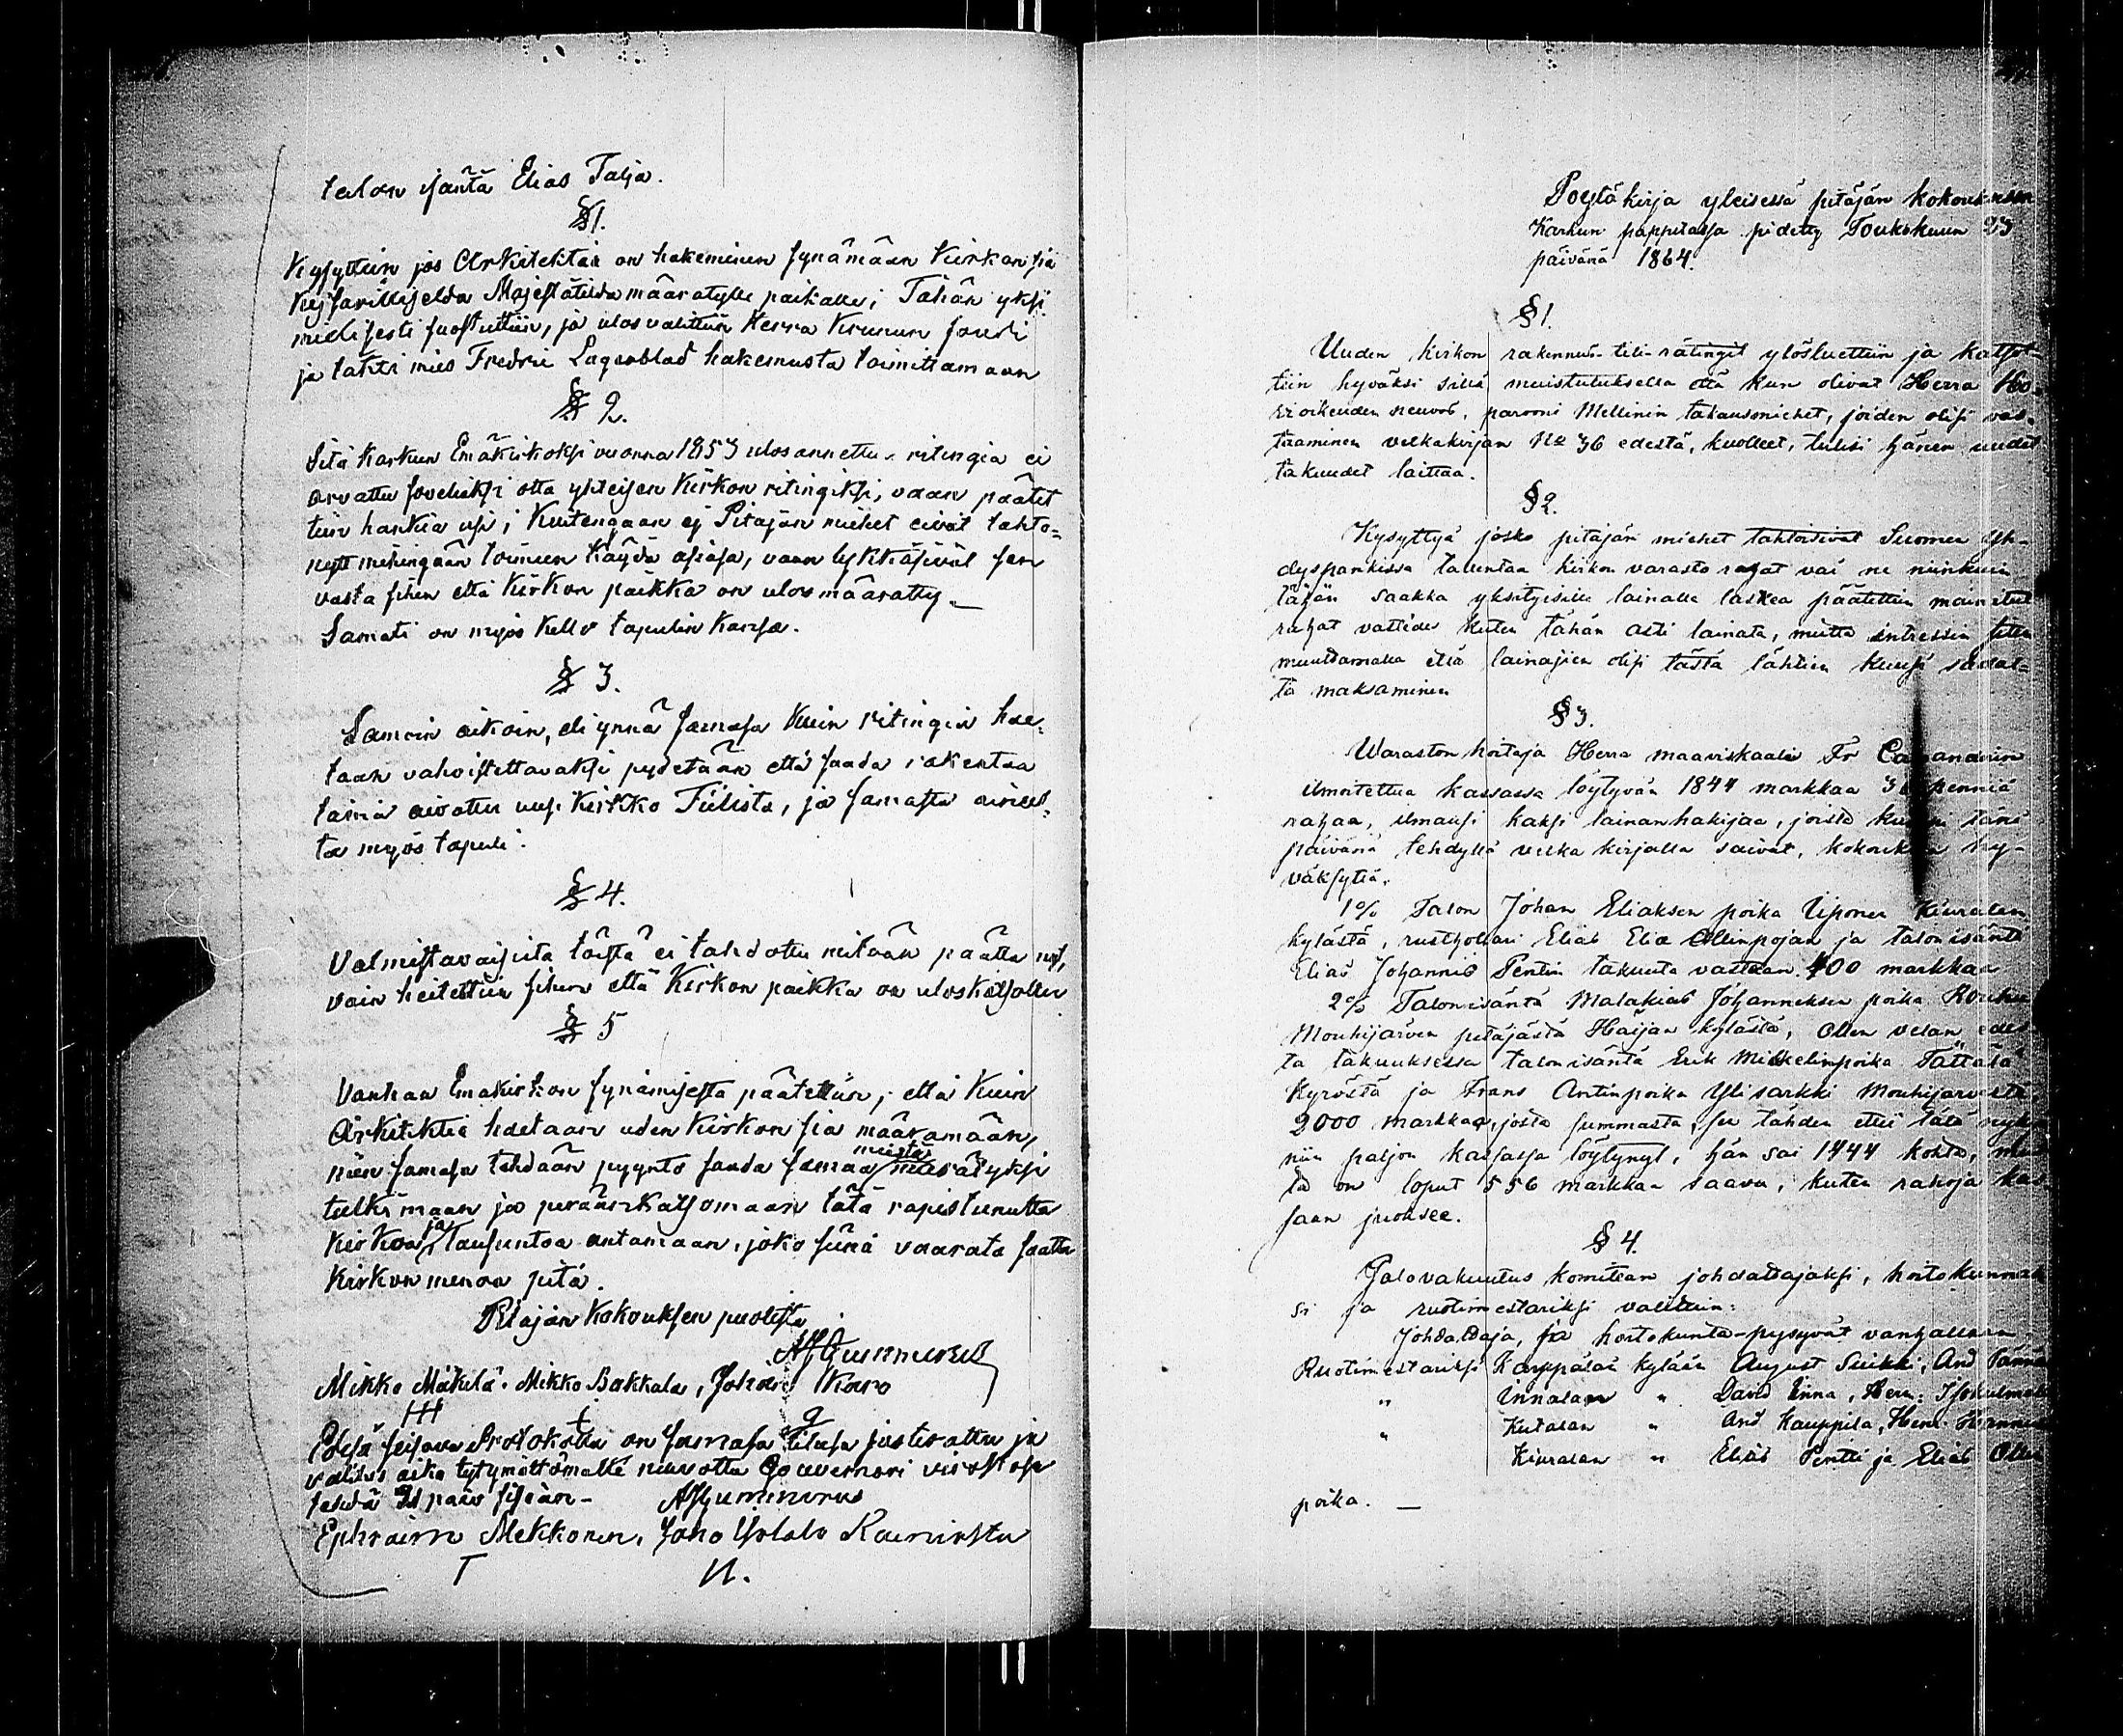 talon isäntä Elias Talja.
§1.
Kysyttiin jos Arkitektiä on hakeminen synämään Kirkon sia
Kejsarillijselda Majestätilda määrätylle paikalle; Tähän yksi
mielisesti suostuttiin, ja ulosvalittiin Herra Kruunun
ja lahti mies Fredric Lagerblad hakemusta toimittamaan
§ 2.
Sitä Karkun Emäkirkoksi vuonna 1853 ulosannettu ritingiä ei
arvattu soveliaksi otta yhteisen Kirkon ritingiksi, vaan päätet
tiin hankia usi; Kuitengaan ej Pitäjän miehet eivät tahto=
neet mihingään toimeen käydä asiasa, vaan lykkäsivät sen
vasta sihen että Kirkon paikka on ulosmäärätty_
Samati on myös Kello tapulin kansa.
§ 3.
Samoin aikoin, eli ynnä samasa kuin ritingiä hae,
taan vahvistettavaksi pydetään että saada rakentaa
tämä aivottu uusi Kirkko Tiilista, ja samasta aines,
ta myös tapuli.
§ 4.
Valmistavaisista töistä ei tahdottu mitään päättä nyt,
vain heitettiin sihen että Kirkon paikka on uloskatsottu
§ 5
Vanhan Emäkirkon synämisestä päätettiin, että Kuin
Arkitektiä haetaan uden Kirkon sia määrämään,
niin samasa tehdään pyyntö saada samaa miestä
tutkimaan ja peräänkatsomaan tätä rapistunutta
Kirkoa ja lausuntoa antamaan, joko siinä vaarata saatta
Kirkon menoa pitä.
Pitäjän Kokouksen puolesta
AHGummerus
Mikko Mäkelä. Mikko Bakkala, Johan Karo
Edesä seisova Protokolla on samasa tilasa justerattu ja
valitus aika tytymättömälle neuvottu Gouvernöri virastosa
AHGummerus
Ephraim Mekkonen, Joho
Poytäkirja yleisessä pitäjän kokouksessa
Karkun pappilassa pidetty Toukokuun 23
päivänä 1864.
§1.
Uuden kirkon rakennus-tili-rätingit ylösluettiin ja katsot-
tiin hyväksi sillä muistutuksella että kun olivat Herra Ho-
vioikeuden neuvos, parooni Mellinin takausmiehet, joiden olisi vas-
taaminen velkakirjan No 36 edestä, kuolleet, tulisi hänen uudet
takuudet laittaa.
§2.
Kysyttyä josko pitäjän miehet tahtoisivat Suomen yh-
dyspankissa talentaa kirkon varasto rahat vai ne niinkuin
tähän saakka yksityisille lainalle laskea päätettiin mainitut
rahat vastedes kuten tähän asti lainata, mutta intressin
muuttamalla että lainajien olisi tästä lähtien kuusi sadal=
ta maksaminen
§3.
Waraston hoitaja Herra maaviskaali Fr
ilmoitettua kassassa löytyvän 1844 markkaa 36 penniä
rahaa, ilmausi kaksi lainanhakijaa, joista kumpi tänä
päivänä tehdyllä velka kirjalla saivat, kokouksen hy-
väksyttä.
1o/o Talon Johan Eliaksen poika Uiponen Kiuralan
kylästä, rusthollari Elias Ollinpojan ja talonisäntä
Elias Johannis Pentin takuuta vastaan. 400 markkaa
2o/o Talonisäntä Malakias Johanneksen poika
Mouhijärven pitäjästä Haijan kylästä, Ollen velan edes
ta takuuksessa talonisäntä Erik Mikkelinpoika
Kyröstä ja Frans Antinpoika Ylisarkki Mouhijärvestä,
2000 markkaa, josta summasta, sen tähden ettei tätä nykyä
niin paljon kassassa löytynyt, hän sai 1444 kohta, mut
ta on loput 556 markkaa saava, kuten rahoja kas
saan juoksee.
§ 4.
Palovakuutus komitean johdattajaksi, hoitokunnak
si ja ruotimestariksi valittiin:
Johdattaja, ja hoitokunta-pysyvät vanhallaan
Ruotimestariksi Karppälän kylään August Suikki, And
" Innalan " David Inna, Herm:
" Kutalan " And Kauppila, Henr
Kiuralan " Elias Pentti ja Elias Ollin
poika. —